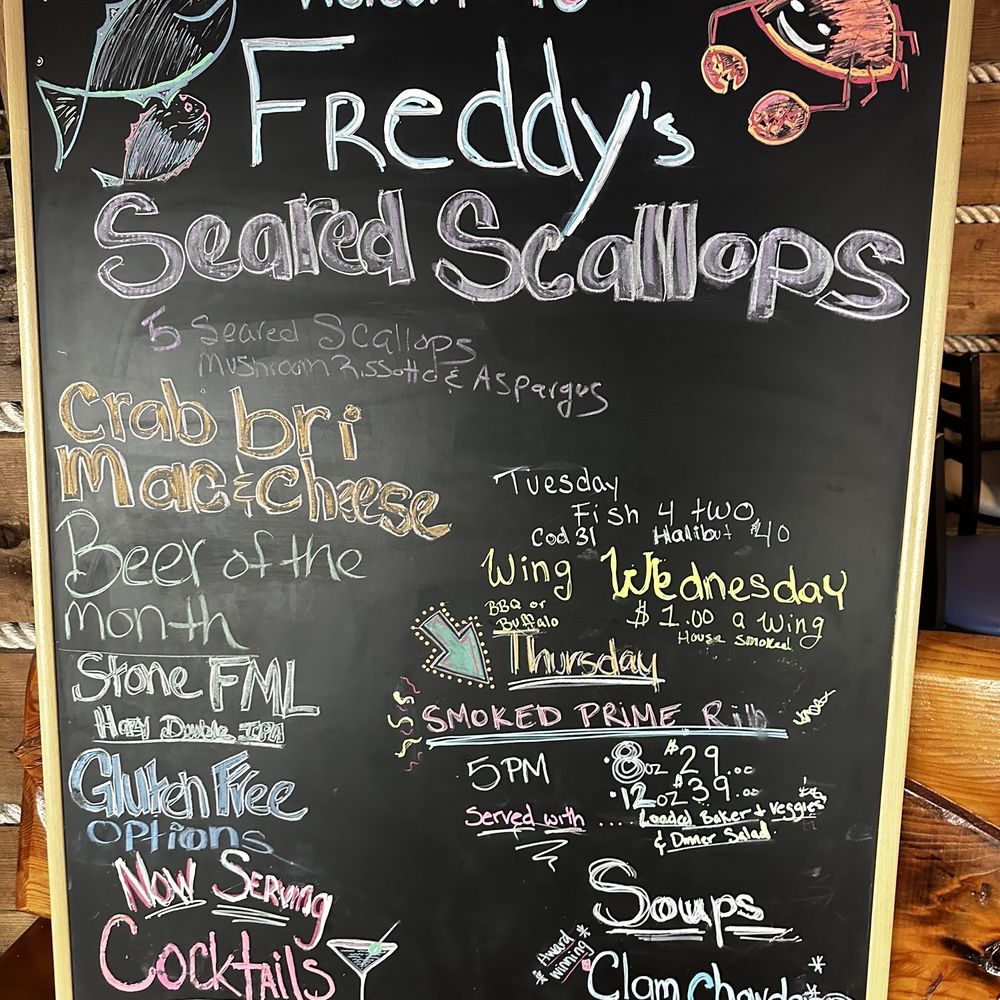 Welcome to
Freddy's
Seared Scallops
5 Seared Scallops
Mushroom Rissotto & Aspargus
Crab bri
Mac & Cheese
Beer of the
month
Stone FML
Hazy Double IPA
Gluten Free
Options
Now Serving
Cocktails
Tuesday
Fish 4 two
Cod 31 Halibut $40
Wing Wednesday
BBQ or
Buffalo
$1.00 a wing
House smoked
Thursday
SMOKED PRIME Rib
5PM
8oz $29.00
12oz $39.00
Served with .... Loaded Baker & Veggies
& Dinner Salad
Soups
Award
winning
Clam Chowder